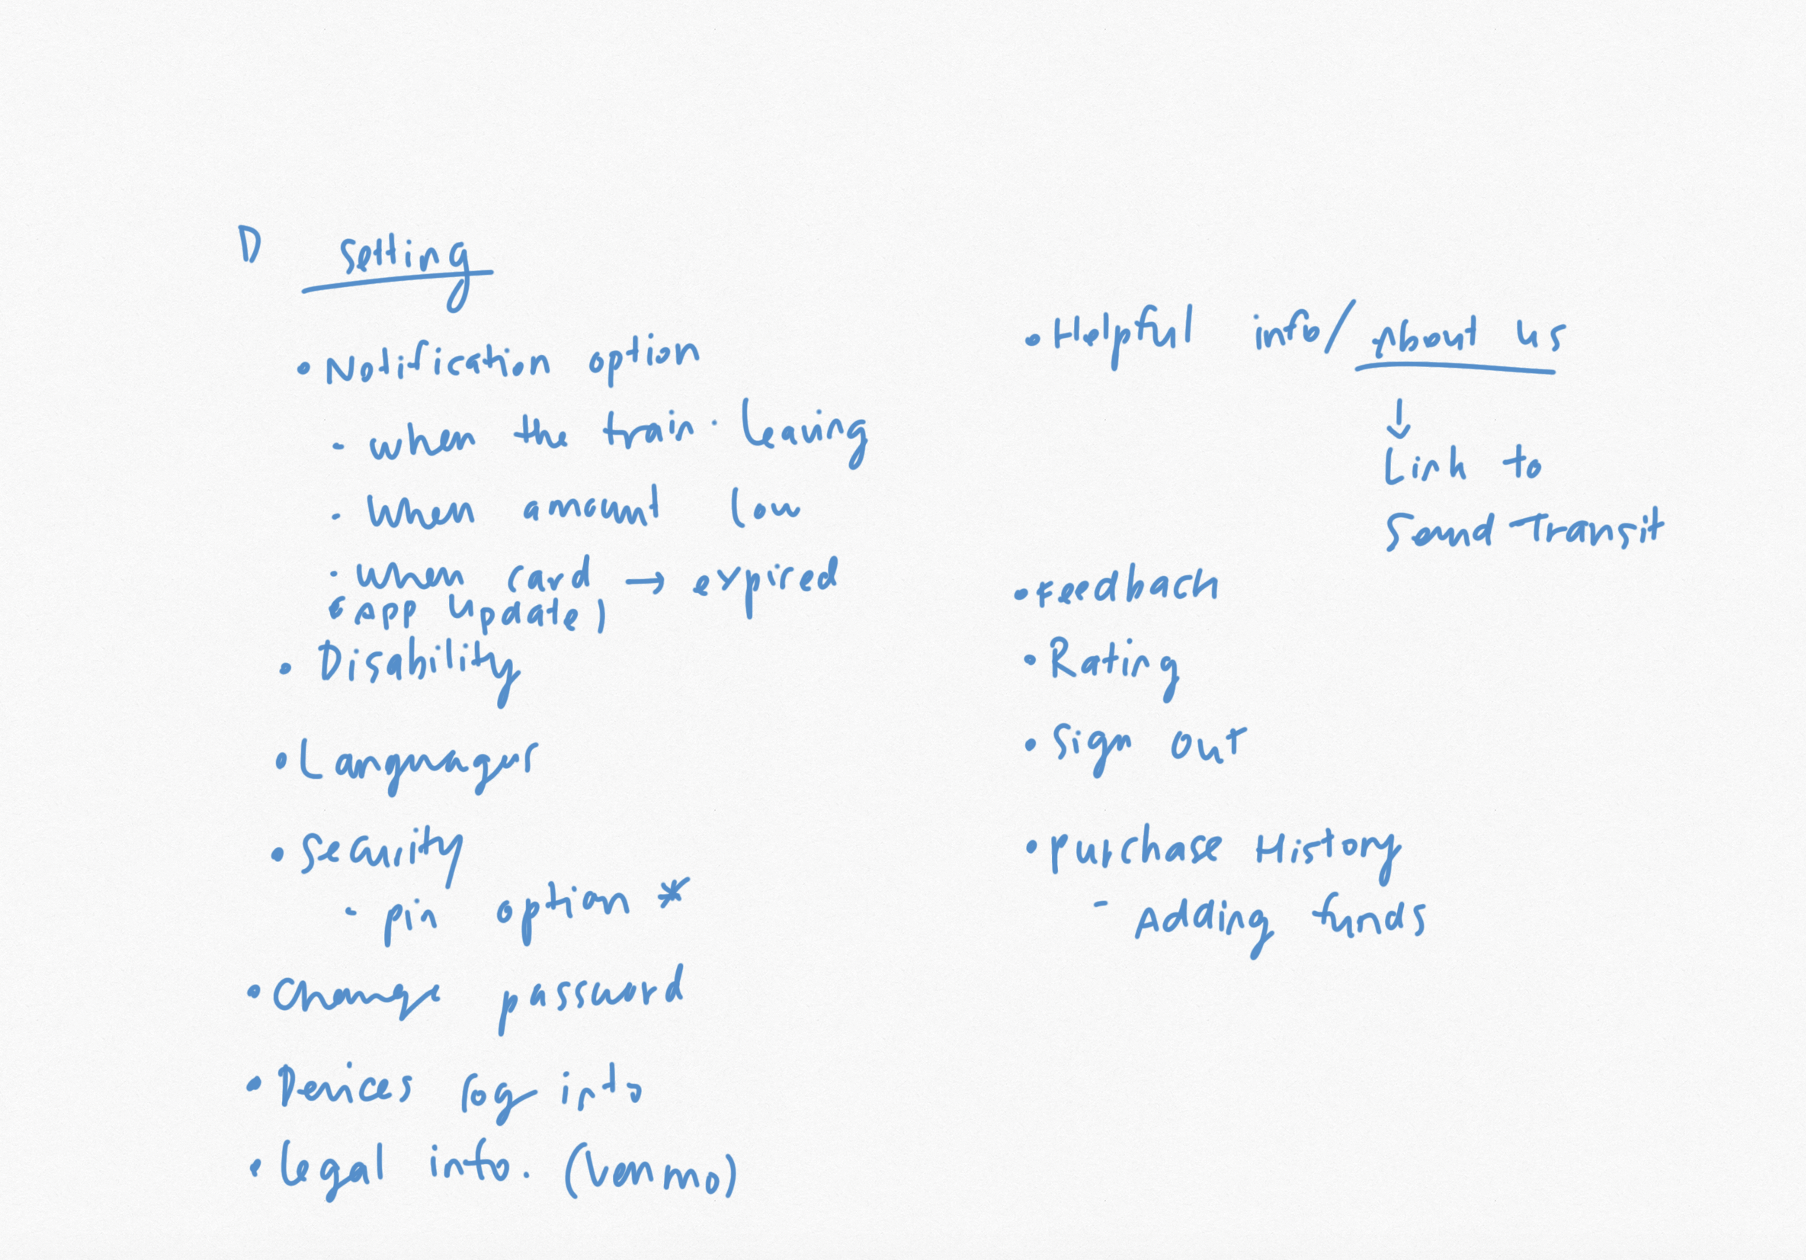 D Setting
• Notification option
- when the train. Leaving
- When amount low
- When card → expired
(App Update)
• Disability
• Languages
• Security
- pin option *
• Change password
• Devices log into
• Legal info. (Venmo)
• Helpful info/About us
↓
Link to
Sound Transit
• Feedback
• Rating
• Sign out
• Purchase History
- Adding funds